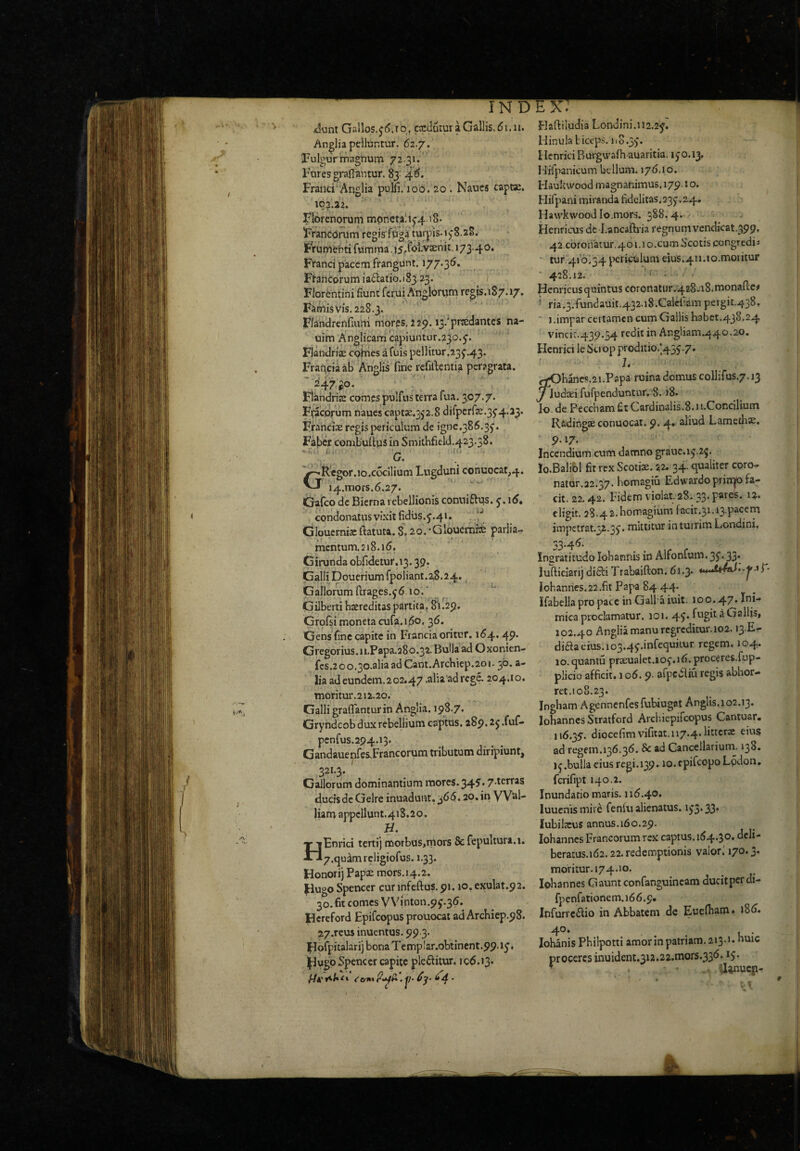 INDEX.
dunt Gallos.56.10, cæduntur à Gallis.61.11.
Anglia pelluntur. 62.7.
Fulgur magnum 72.31.
Fures grassantur. 83 46.
Franci Anglia pulsi. 100. 20. Naues captæ.
103.22.
Florenorum moneta.154.18.
Francorum regis fuga turpis.158.28.
Frumenti summa 15.sol.væniit.173.40.
Franci pacem frangunt. 177.36.
Francorum iactatio.183.23.
Florentini fiunt serui Anglorum regis.187.17.
Famis vis. 228.3.
Flandrensium mores. 229. 13. prædantes na-
uim Anglicam capiuntur.230.5.
Flandriæ comes à suis pellitur.235.43.
Francia ab Anglis sine resistentia peragrata.
247.30.
Flandriæ comes pulsus terra sua. 307.7.
Fracorum naues captæ.352.8 dispersæ.354.23.
Franciæ regis periculum de igne.386.35.
Faber combustus in Smithfield.423.38.
G.
GRegor.10.cōcilium Lugduni conuocat,4.
14.mors.6.27.
Gasco de Bierna rebellionis conuictus. 5.16.
condonatus vixit fidus.5.41.
Glouerniæ statuta. 8. 20. Glouerniæ parlia-
mentum.218.16.
Girunda obsidetur.13.39.
Galli Douerium spoliant.28.24.
Gallorum strages.56 10.
Gilberti hæreditas partita, 81.29.
Grossi moneta cusa.160. 36.
Gens sine capite in Francia oritur. 164. 49.
Gregorius.11.Papa.280.32.Bulla ad Oxonien-
ses.200.30.alia ad Cant.Archiep.201.30. a-
lia ad eundem.202.47.alia ad regē. 204.10.
moritur.212.20.
Galli grassantur in Anglia. 198.7.
Gryndcob dux rebellium captus. 289.25.sus-
pensus.294.13.
Gandauenses Francorum tributum diripiunt,
321.3.
Gallorum dominantium mores. 345.7.terras
ducis de Gelre inuadunt. 366. 20.in VVal-
liam appellunt.418.20.
H.
HEnrici tertij morbus,mors & sepultura.1.
7.quàm religiosus. 1.33.
Honorij Papæ mors.14.2.
Hugo Spencer cur infestus. 91.10. exulat.92.
30.fit comes VVinton.95.36.
Hereford Episcopus prouocat ad Archiep.98.
27.reus inuentus.99.3.
Hospitalarij bona Templar.obtinent.99.15.
Hugo Spencer capite plectitur. 106.13.
Hastiludia Londini.112.25.
Hinula biceps. 118.35.
Henrici Burgwash auaritia. 150.13.
Hispanicum bellum. 176.10.
Haukwood magnanimus.179.10.
Hispani miranda fidelitas.235.24.
Hawkwood Io.mors. 388.4.
Henricus de Lancastria regnum vendicat.399.
42 coronatur.401.10.cum Scotis congredi-
tur 410.34 periculum eius.411.10.moritur
428.12.
Henricus quintus coronatur.428.18.monaste-
ria.3.fundauit.432.18.Calesiam pergit.438.
1.impar certamen cum Gallis habet.438.24
vincit.439.54 redit in Angliam.440.20.
Henrici le Scrop proditio.435.7.
I.
IOhānes.21.Papa ruina domus collisus.7.13
Iudæi suspenduntur. 8. 18.
Io de Peccham fit Cardinalis.8.11.Concilium
Rædingæ conuocat. 9. 4. aliud Lamethæ.
9.17.
Incendium cum damno graue.15.25.
Io.Baliol fit rex Scotiæ. 22. 34. qualiter coro-
natur.22.37. homagiū Edwardo primo fa-
cit. 22. 42. Fidem violat. 28. 33. pares. 12.
eligit. 28.42.homagium facit.31.13.pacem
impetrat.32.35. mittitur in turrim Londini.
33.46.
Ingratitudo Iohannis in Alfonsum. 35.33.
Iusticiarij dicti Trabaiston. 61.3.
Iohannes.22.fit Papa 84 44.
Isabella pro pace in Galliā iuit. 100. 47. Ini-
mica proclamatur. 101. 45. fugit à Gallis,
102.40 Anglia manu regreditur.102. 13.E-
dicta eius.103.45.insequitur regem. 104.
10.quantū præualet.105.16.proceres.sup-
plicio afficit. 106. 9. aspectū regis abhor-
ret.108.23.
Ingham Agennenses subiugat Anglis.102.13.
Iohannes Stratford Archiepiscopus Cantuar.
116.35. diocesim visitat.117.4. litteræ eius
ad regem.136.36. & ad Cancellarium. 138.
15.bulla eius regi.139. 10. episcopo Lōdon.
scripsit 140.2.
Inundatio maris. 116.40.
Iuuenis mirè sensu alienatus. 153.33.
Iubilæus annus.160.29.
Iohannes Francorum rex captus.164.30. deli-
beratus.162. 22. redemptionis valor. 170.3.
moritur.174.10.
Iohannes Gaunt consanguineam ducit per di-
spensationem.166.9.
Insurrectio in Abbatem de Euesham. 186.
40.
Iohānis Philpotti amor in patriam. 213.1. huic
proceres inuident.312.22.mors.336.15.
Ianuen-